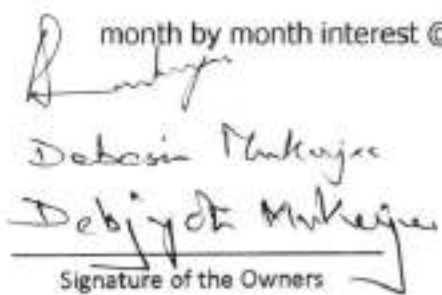 month by month interest @
Debasis Mukerjee
Debjyoti Mukerjee
Signature of the Owners